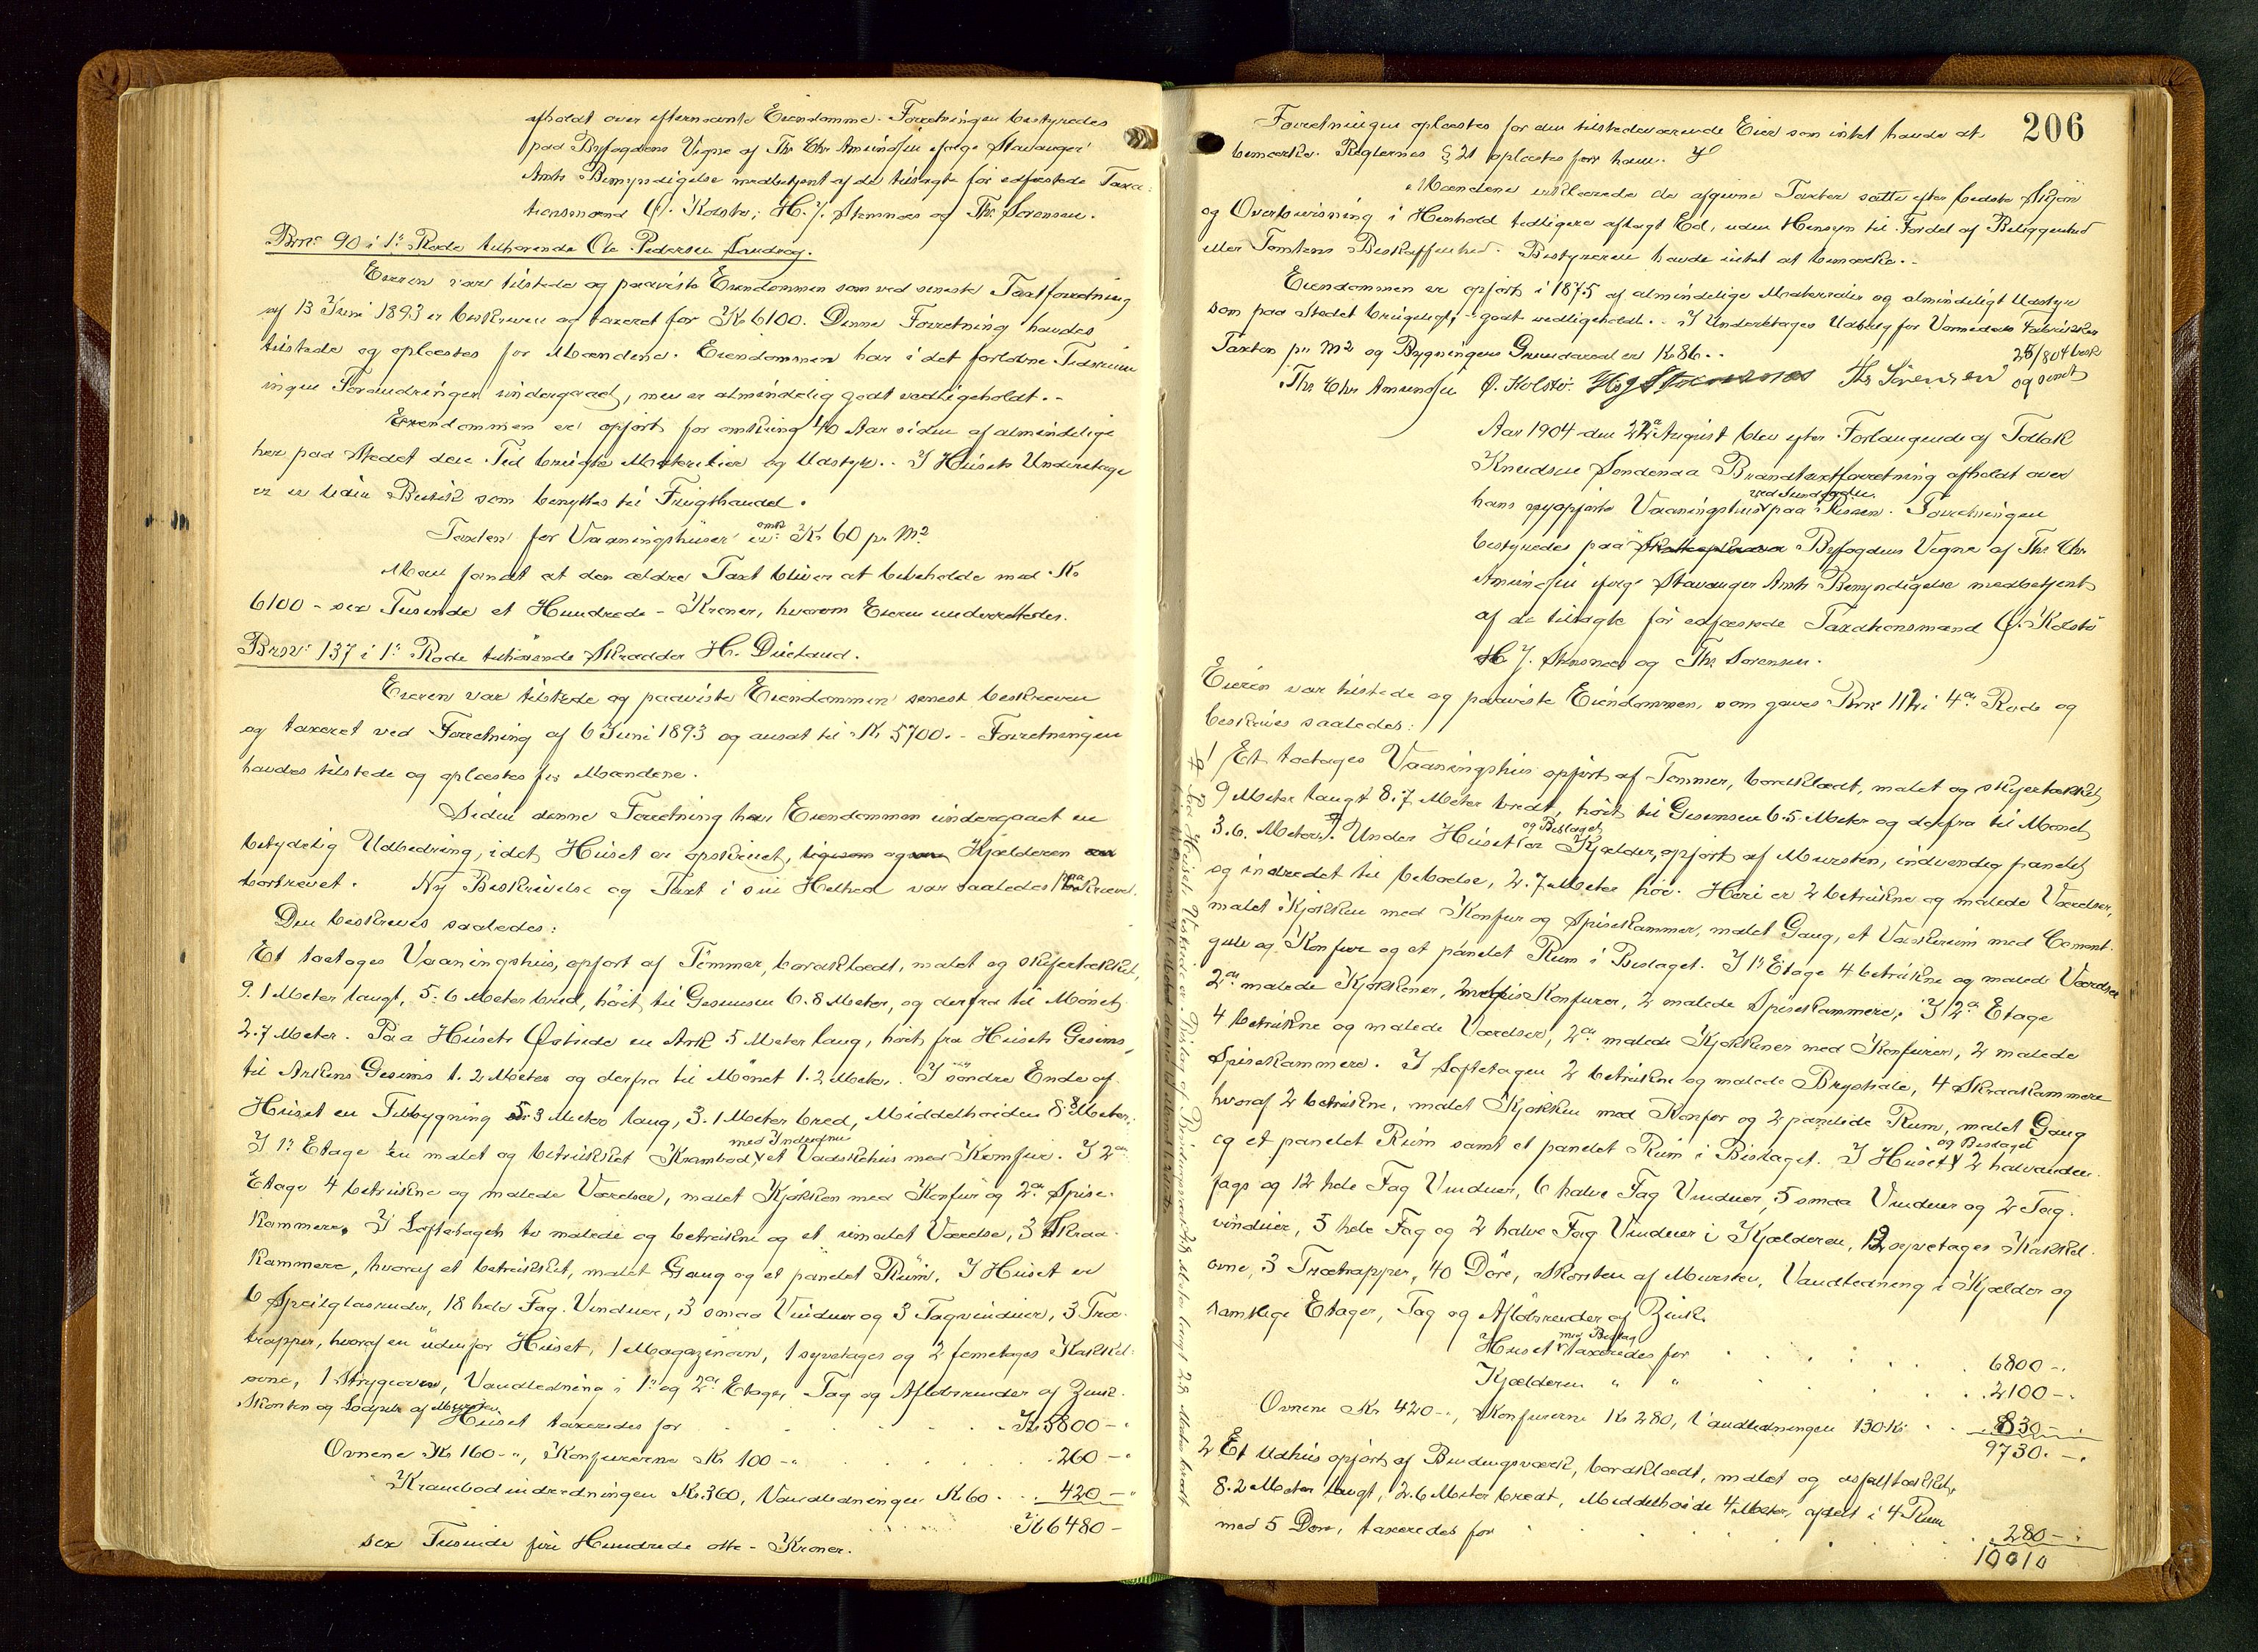 afholdt over efternævnte Eiendomme. Forretningen bestyredes
paa Byfogdens Vegne af Ths Chr Amundsen ifølge Stavanger
Amts Bemyndigelse medbetjent af de tilsagte før edfæstede Taxa-
tionsmænd O. Kolstø, H. J. Stensnæs og Ths. Sørensen.
Brnr 90 i 1ste Rode tilhørende Ole Pedersen Sandvog.
Eieren var tilstede og paaviste Eiendommen som ved seneste Taxtforretning
af 13 Juni 1893 er beskreven og taxeret for Kr 6100. Denne Forretning havdes
tilstede og oplæstes for Mændene. Eiendommen har i det forløbne Tidsrum
ingen Forandringer undergaaet, men er almindelig godt vedligeholdt. -
Eiendommen er opført for omkring 40 Aar siden af almindelige
her paa Stedet den Tid brugte Materialier og Udstyr. - I Husets Underetage
er en liden Butik som benyttes til Frugthandel.
Taxten for Vaaningshuset er omkr Kr 60 pr. M2
Man fandt at den ældre Taxt bliver at bibeholde med Kr
6100 - sex Tusinde et Hundrede - Kroner, hvorom Eieren underrettedes.
Brnr 137 i 1ste Rode tilhørende Skrædder H. Dueland.
Eieren var tilstede og paaviste Eiendommen senest beskreven
og taxeret ved Forretning af 6 Juni 1893 og ansat til Kr 5700. - Forretningen
havdes tilstede og oplæstes for Mændene.
Siden denne Forretning har Eiendommen undergaaet en
betydelig Udbedring, idet Huset er opskruet, og Kjælderen
bortrevet. Ny Beskrivelse og Taxt i sin Helhed var saaledes paakrævet.
Den beskrives saaledes:
Et toetages Vaaningshus, opført af Tømmer, bordklædt, malet og skifertækket,
9.1 Meter langt, 5.6 Meter bred, høit til Gesimsen 6.8 Meter, og derfra til Mønet
2.7 Meter. Paa Husets Østside en Ark 5 Meter lang, høit fra Husets Gesims
til Arkens Gesims 1.2 Meter og derfra til Mønet 1.2 Meter. I søndre Ende af
Huset en Tilbygning 5.3 Meter lang, 3.1 Meter bred, Middelhøiden 8.8 Meter.
I 1ste Etage en malet og betrukket Krambod med Indredning, et Vadskehus med Komfur. I 2den
Etage 4 betrukne og malede Værelser, malet Kjøkken med Konfur og 2de Spise-
kammere. I Loftetagen to malede og betrukne og et umalet Værelse, 3 Skraa-
kammere, hvoraf et betrukket, malet Gang og et panelet Rum. I Huset er
6 Speilglasruder, 18 hele Fag Vinduer, 3 smaa Vinduer og 3 Tagvinduer, 3 Træ-
trapper, hvoraf en udenfor Huset, 1 Magazinovn, 1 syvetages og 2 femetages Kakkel-
ovne, 1 Strygeovn, Vandledning i 1ste og 2den Etage, Tag og Afløbsrender af Zink.
Skorsten og Lodpibe af Mursten.
Huset taxeredes for Kr 5800 -
Ovnene Kr 160 -, Konfurerne Kr 100 - 260 -
Krambodindredningen Kr. 360, Vandledningen Kr 60 420 -
Kr 6480 -
sex Tusinde fire Hundrede otte - Kroner.
206
Forretningen oplæstes for den tilstedeværende Eier som intet havde at
bemærke. Reglernes § 21 oplæstes for ham.
Mændene erklærede de afgivne Taxter satte efter bedste Skjøn
og Overbevisning i Henhold tidligere aflagt Ed, uden Hensyn til Fordel af Beliggenhed
eller Tomtens Beskaffenhed. Bestyreren havde intet at bemærke. -
Eiendommen er opført i 1875 af almindelige Materialier og almindeligt Udstyr
som paa Stedet brugeligt, - godt vedligeholdt. - I Underetagen Udsalg for
Taxten pr M2 og Bygningens Grundareal er Kr 86. -
25/8 04 besk
og sendt
Ths Chr Amundsen O. Kolstø. H J Stensnæs Ths Sørensen
Aar 1904 den 22de August blev efter Forlangende af Tollak
Knudsen Søndenaa Brandtaxtforretning afholdt over
hans nyopførte Vaaningshus ved Sundgaden paa Risøen. Forretningen
bestyredes paa Byfogdens Vegne af Ths Chr.
Amundsen ifølge Stavanger Amts Bemyndigelse medbetjent
af de tilsagte før edfæstede Taxationsmænd O. Kolstø
H. J. Stensnæs og Ths Sørensen.
Eieren var tilstede og paaviste Eiendommen, som gaves Brnr 112 i 4de Rode og
beskrives saaledes:
1/ Et toetages Vaaningshus opført af Tømmer, bordklædt, malet og skifertækket
9 Meter langt 8.7 Meter bredt, høit til Gesimsen 6.5 Meter og derfra til Mønet
3.6 Meter. Under Huset og Bislaget er Kjælder, opført af Mursten, indvendig panelet
og indredet til beboelse, 2.7 Meter høi. Heri er 2 betrukne og malede Værelser,
malet Kjøkken med Konfur og Spisekammer, malet Gang, et Vaskerum med Cement-
gulv og Konfur og et panelet Rum i Bislaget. I 1ste Etage 4 betrukne og malede Værelser
2de malede Kjøkkener, med 2 Konfurer, 2 malede Spisekammere. I 2den Etage
4 betrukne og malede Værelser, 2de malede Kjøkkener med Konfurer, 2 malede
Spisekammere. I Loftetagen 2 betrukne og malede Brystsale, 4 Skraakammere
hvoraf 2 betrukne, malet Kjøkken med Konfur og 2 panelede Rum, malet Gang
og et panelet Rum samt et panelet Rum i Bislaget. I Huset og Bislaget 2 halvanden-
fags og 12 hele Fag Vinduer, 6 halve Fag Vinduer, 5 smaa Vinduer og 2 Tag-
vinduer, 3 hele Fag og 2 halve Fag Vinduer i Kjælderen, 12 syvetages Kakkel-
ovne, 3 Trætrapper, 40 Døre, Skorsten af Mursten, Vandledning i Kjælder og
samtlige Etager, Tag og Afløbsrender af Zink.
Huset med Bislag taxeredes for 6800 -
Kjælderen " " 2100 -
Ovnene Kr 420 -, Konfurerne Kr 280, Vandledningen 130 Kr 830 -
9730. -
2 Et Udhus opført af Bindingsværk, bordklædt, malet og asfalttækket,
8.2 Meter langt, 2.6 Meter bredt, Middelhøide 4 Meter, afdelt i 4 Rum
med 5 Døre, taxeredes for 280 -
10010
Paa Husets Vestside er Bislag af Bindingsværk 2.8 Meter langt 2.8 Meter bredt